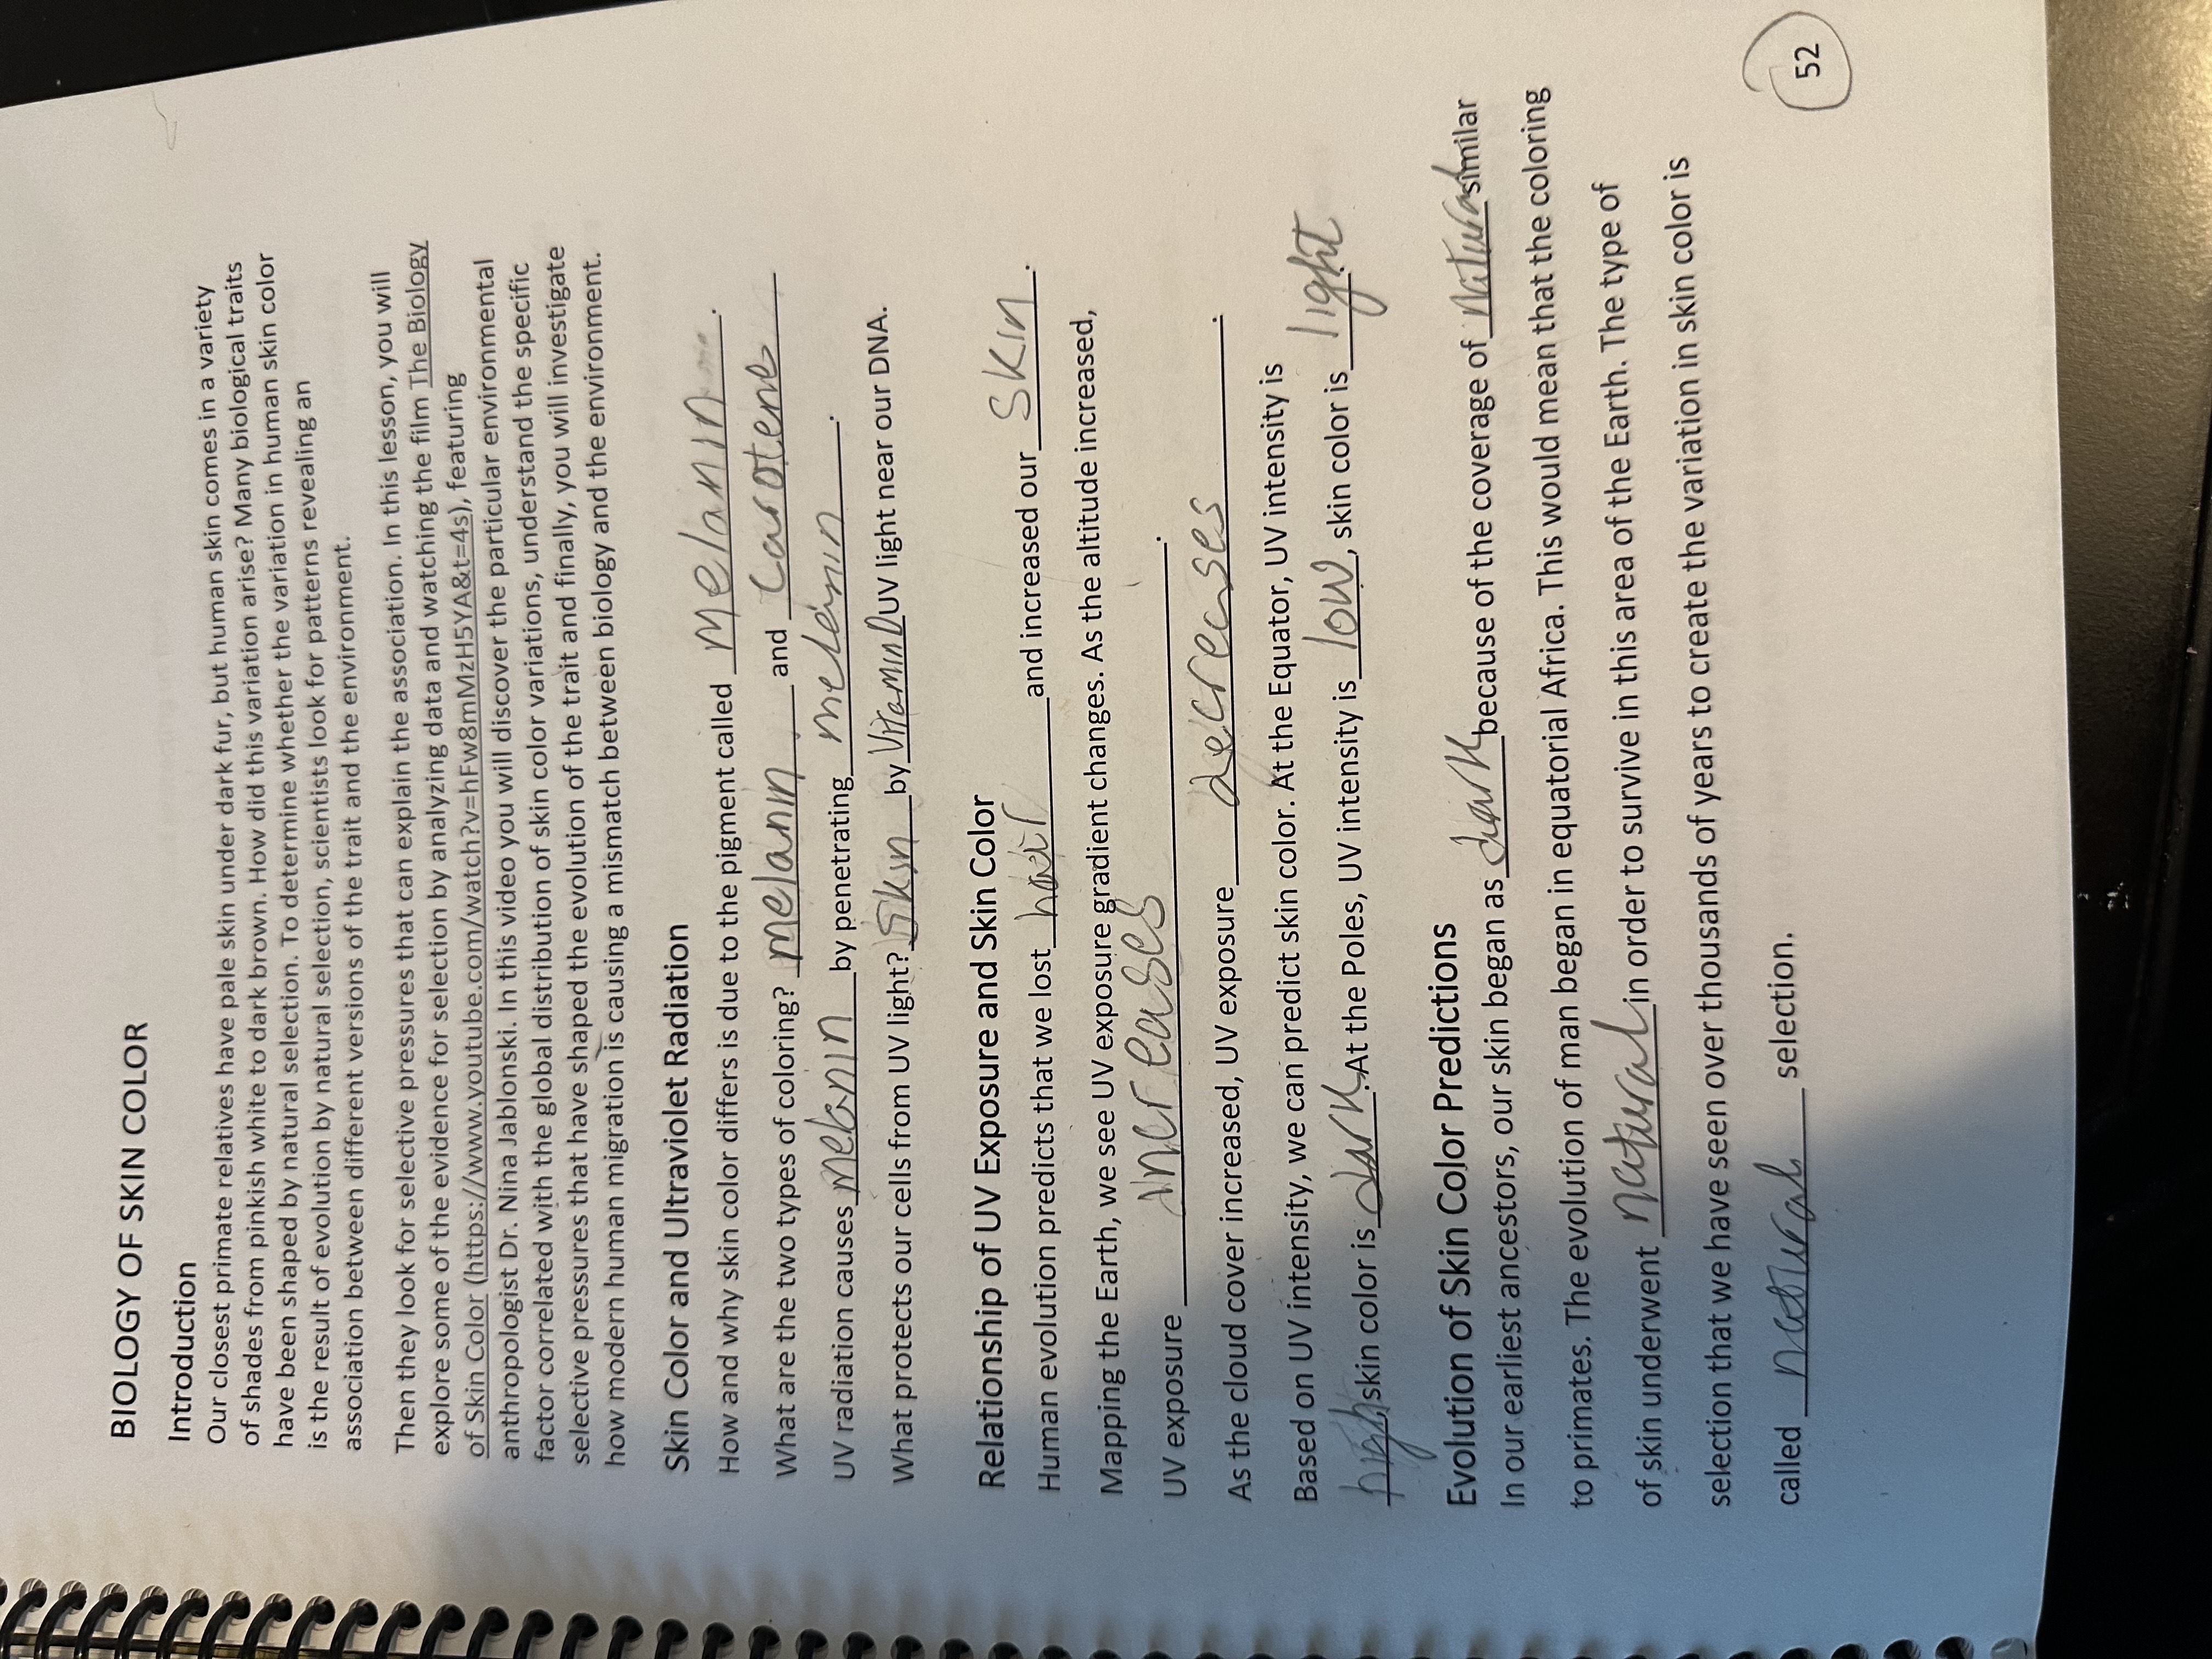 BIOLOGY OF SKIN COLOR
Introduction
Our closest primate relatives have pale skin under dark fur, but human skin comes in a variety
of shades from pinkish white to dark brown. How did this variation arise? Many biological traits
have been shaped by natural selection. To determine whether the variation in human skin color
is the result of evolution by natural selection, scientists look for patterns revealing an
association between different versions of the trait and the environment.
Then they look for selective pressures that can explain the association. In this lesson, you will
explore some of the evidence for selection by analyzing data and watching the film The Biology
of Skin Color (https://www.youtube.com/watch?v=hFw8mMzH5YA&t=4s), featuring
anthropologist Dr. Nina Jablonski. In this video you will discover the particular environmental
factor correlated with the global distribution of skin color variations, understand the specific
selective pressures that have shaped the evolution of the trait and finally, you will investigate
how modern human migration is causing a mismatch between biology and the environment.
Skin Color and Ultraviolet Radiation
How and why skin color differs is due to the pigment called melanin.
What are the two types of coloring? melanin and carotene
UV radiation causes melanin by penetrating melanin.
What protects our cells from UV light? Skin by Vitamin D UV light near our DNA.
Relationship of UV Exposure and Skin Color
Human evolution predicts that we lost hair and increased our skin.
Mapping the Earth, we see UV exposure gradient changes. As the altitude increased,
UV exposure increases.
As the cloud cover increased, UV exposure decreases.
Based on UV intensity, we can predict skin color. At the Equator, UV intensity is
high, skin color is dark. At the Poles, UV intensity is low, skin color is light.
Evolution of Skin Color Predictions
In our earliest ancestors, our skin began as dark because of the coverage of natural similar
to primates. The evolution of man began in equatorial Africa. This would mean that the coloring
of skin underwent natural in order to survive in this area of the Earth. The type of
selection that we have seen over thousands of years to create the variation in skin color is
called natural selection.
52